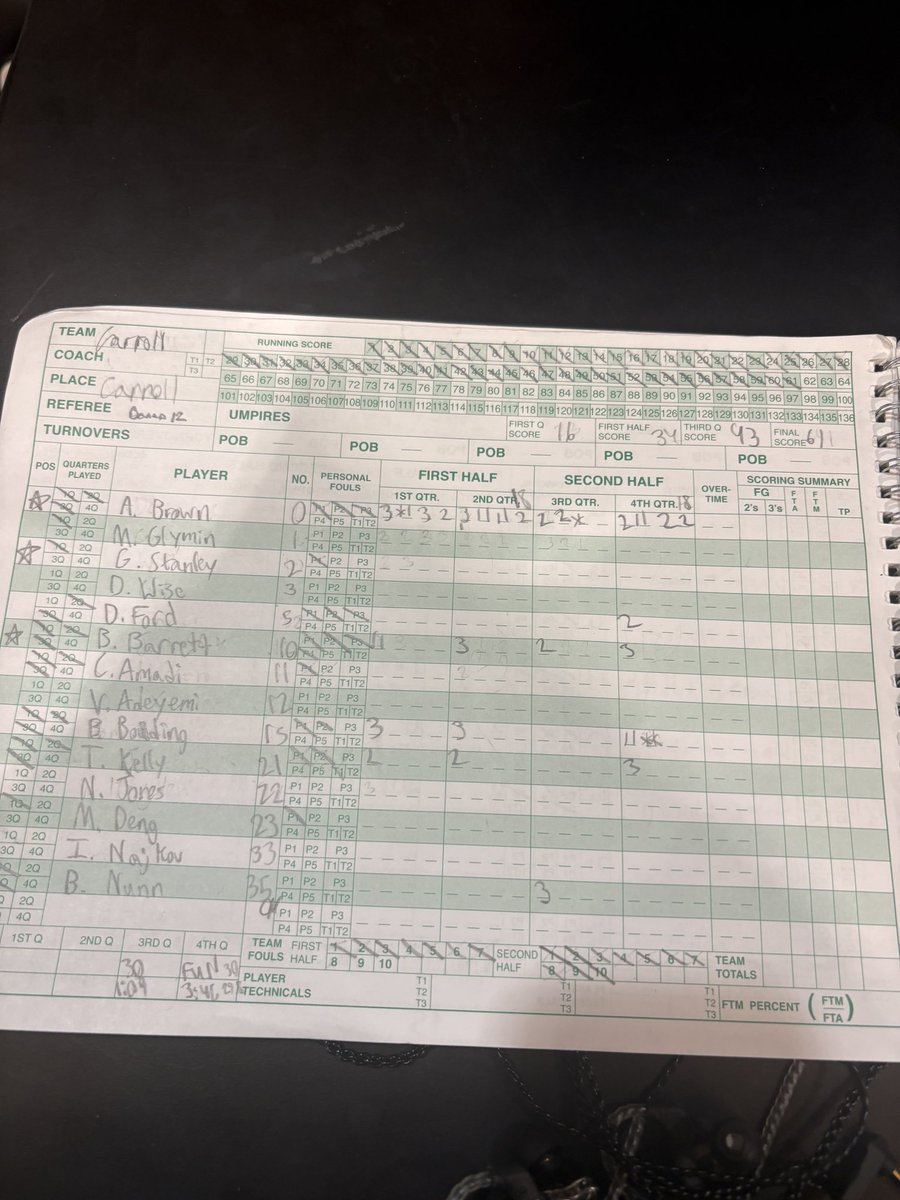 TEAM Carroll RUNNING SCORE 1 2 3 4 5 6 7 8 9 10 11 12 13 14 15 16 17 18 19 20 21 22 23 24 25 26 27 28
COACH T1 T2 T3 29 30 31 32 33 34 35 36 37 38 39 40 41 42 43 44 45 46 47 48 49 50 51 52 53 54 55 56 57 58 59 60 61 62 63 64
65 66 67 68 69 70 71 72 73 74 75 76 77 78 79 80 81 82 83 84 85 86 87 88 89 90 91 92 93 94 95 96 97 98 99 100
PLACE Carroll 101 102 103 104 105 106 107 108 109 110 111 112 113 114 115 116 117 118 119 120 121 122 123 124 125 126 127 128 129 130 131 132 133 134 135 136
REFEREE UMPIRES FIRST Q SCORE 16 FIRST HALF SCORE 34 THIRD Q SCORE 43 FINAL SCORE 61
TURNOVERS POB POB POB POB POB
POS QUARTERS PLAYED PLAYER NO. PERSONAL FOULS FIRST HALF SECOND HALF OVER-TIME SCORING SUMMARY
1ST QTR. 2ND QTR. 18 3RD QTR. 4TH QTR. 18 FG 2's 3's FTA FTM TP
1Q 2Q 3Q 4Q A. Brown 0 P1 P2 P3 P4 P5 T1 T2
1Q 2Q 3Q 4Q M. Glymin 1 P1 P2 P3 P4 P5 T1 T2
1Q 2Q 3Q 4Q G. Stanley 2 P1 P2 P3 P4 P5 T1 T2
1Q 2Q 3Q 4Q D. Wise 3 P1 P2 P3 P4 P5 T1 T2
1Q 2Q 3Q 4Q D. Ford 5 P1 P2 P3 P4 P5 T1 T2 2
1Q 2Q 3Q 4Q B. Barrett 10 P1 P2 P3 P4 P5 T1 T2 3 2 3
1Q 2Q 3Q 4Q C. Amadi 11 P1 P2 P3 P4 P5 T1 T2
1Q 2Q 3Q 4Q V. Adeyemi 12 P1 P2 P3 P4 P5 T1 T2
1Q 2Q 3Q 4Q 15 P1 P2 P3 P4 P5 T1 T2 3 3
1Q 2Q 3Q 4Q T. Kelly 21 P1 P2 P3 P4 P5 T1 T2 2 2 3
1Q 2Q 3Q 4Q N. Jones 22 P1 P2 P3 P4 P5 T1 T2
1Q 2Q 3Q 4Q M. Deng 23 P1 P2 P3 P4 P5 T1 T2
1Q 2Q 3Q 4Q I. Najkov 33 P1 P2 P3 P4 P5 T1 T2
2Q 4Q B. Nunn 35 P1 P2 P3 P4 P5 T1 T2 3
2Q 4Q P1 P2 P3 P4 P5 T1 T2
1ST Q 2ND Q 3RD Q 4TH Q TEAM FOULS FIRST HALF 1 2 3 4 5 6 7 8 9 10 SECOND HALF 1 2 3 4 5 6 7 8 9 10 TEAM TOTALS
30 Full 30
1:09 PLAYER TECHNICALS T1 T2 T3 T1 T2 T3 T1 T2 T3 FTM PERCENT (FTM/FTA)